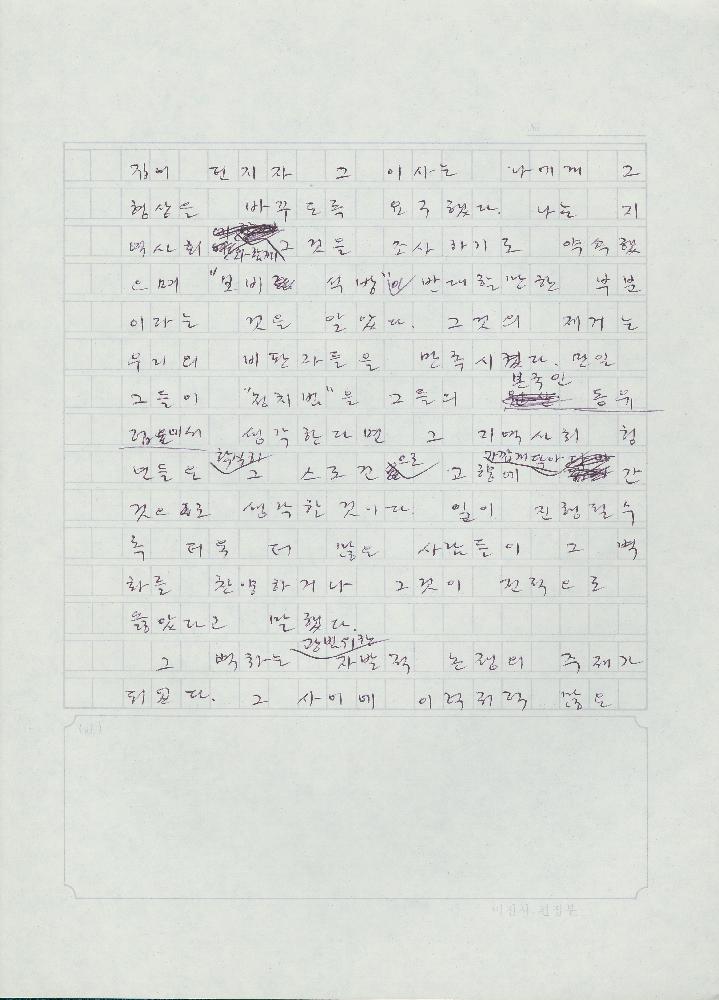 집어 던지자 그 이사는 나에게 그
형상을 바꾸도록 요구했다. 나는 지
역사회와 함께 그것을 조사하기로 약속했
으며 "모비 석방"이 반대할 만한 부분
이라는 것을 알았다. 그것의 제거는
우리의 비판자들을 만족시켰다. 만일
그들이 "정치범"을 그들의 본국인 동유
럽에서 생각한다면 그 지역사회 형
그 스로건으로 고향에 가깝게 닥아 간
것으로 생각한것이다. 일이 진행될수
록 더욱 더 많은 사람들이 그 벽
화를 찬양하거나 그것이 전적으로
옳았다고 말했다.
그 벽화는 광범위한 자발적 논쟁의 주제가
되었다. 그 사이에 이력저력 많은
미진사 편집부